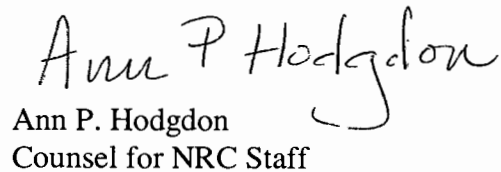 Ann P Hodgdon
Ann P. Hodgdon
Counsel for NRC Staff